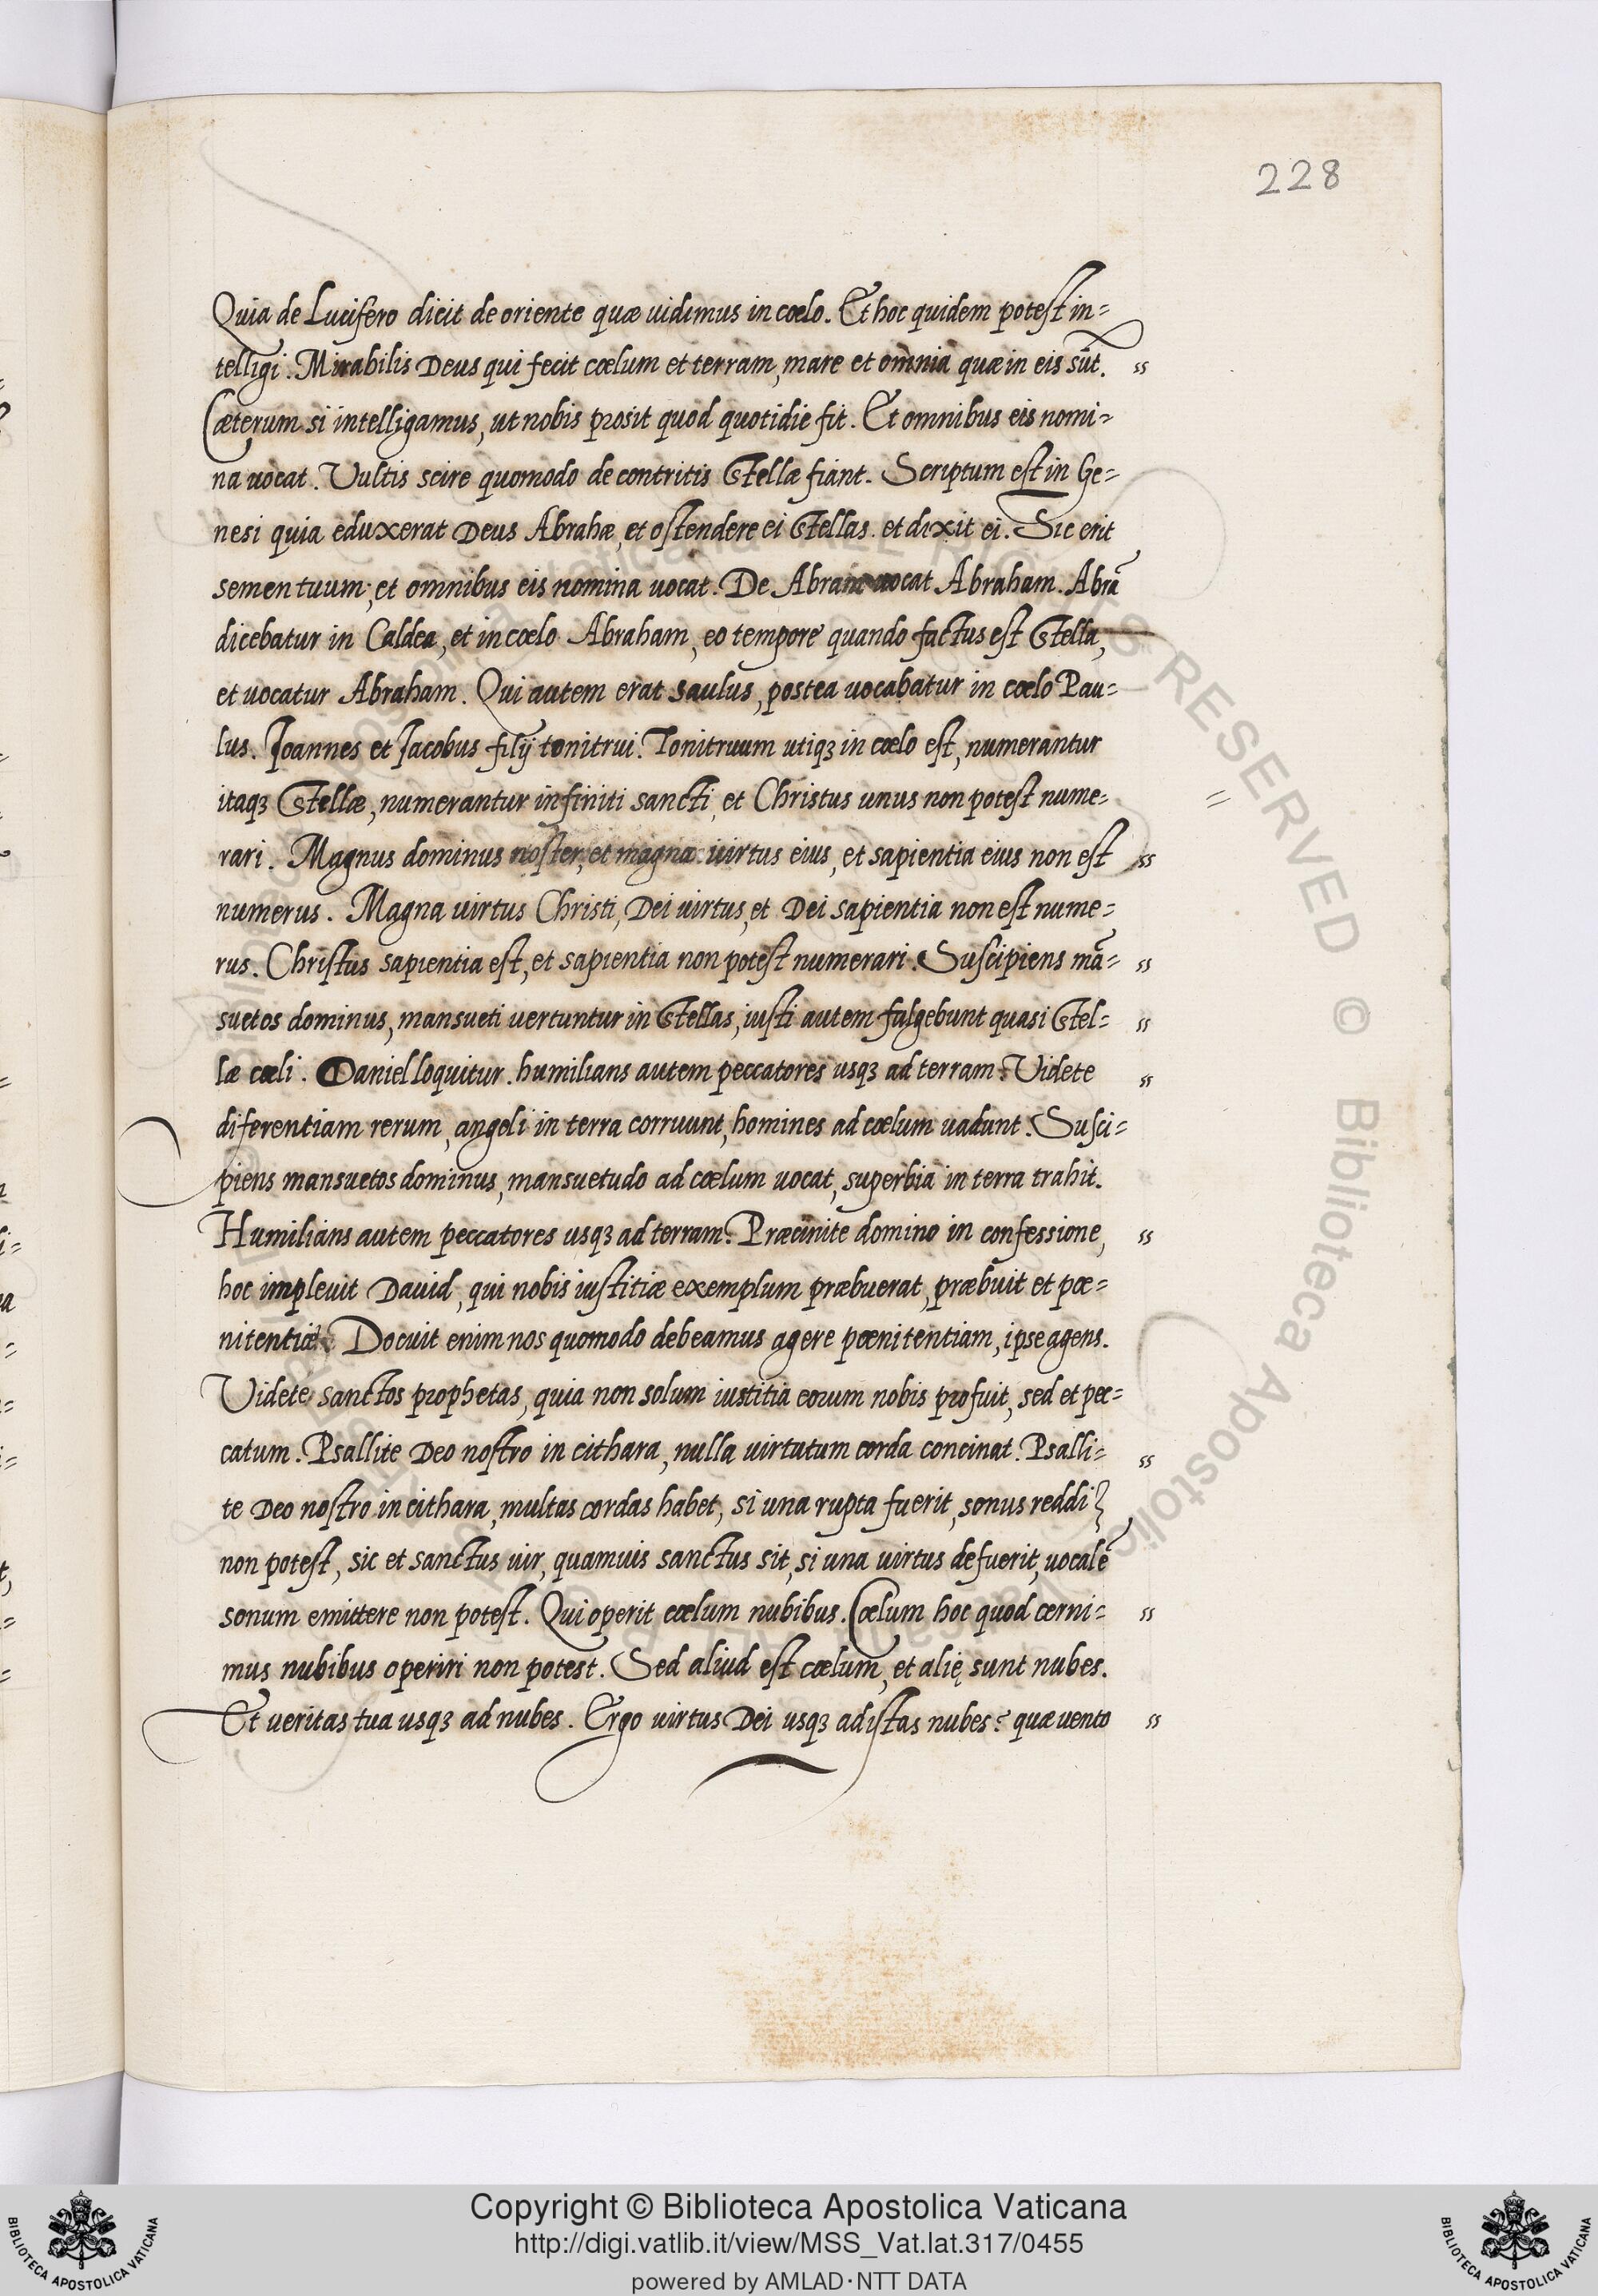 228
Quia de Lucifero dicit de oriente quæ uidimus in cœlo. Et hoc quidem potest in=
telligi. Mirabilis Deus qui fecit cœlum et terram, mare et omnia quæ in eis sūt. ss
Cæterum si intelligamus, ut nobis prosit quod quotidie fit. Et omnibus eis nomi=
na uocat. Vultis scire quomodo de contritis Stellæ fiant. Scriptum est in Ge=
nesi quia eduxerat Deus Abrahæ, et ostendere ei Stellas. et dixit ei. Sic erit
semen tuum; et omnibus eis nomina uocat. De Abram uocat Abraham. Abrā
dicebatur in Caldea, et in cœlo Abraham, eo tempore quando factus est Stella,
et uocatur Abraham. Qui autem erat Saulus, postea uocabatur in cœlo Pau=
lus. Joannes et Jacobus filij tonitrui. Tonitruum utiqꝫ in cœlo est, numerantur
itaqꝫ Stellæ, numerantur infiniti sancti, et Christus unus non potest nume= =
rari. Magnus dominus noster, et magna uirtus eius, et sapientia eius non est ss
numerus. Magna uirtus Christi, Dei uirtus, et Dei sapientia non est nume=
rus. Christus sapientia est, et sapientia non potest numerari. Suscipiens mā= ss
suetos dominus, mansueti uertuntur in Stellas, iusti autem fulgebunt quasi Stel= ss
læ cœli. Daniel loquitur. humilians autem peccatores usqꝫ ad terram. Videte ss
diferentiam rerum, angeli in terra corruunt, homines ad cœlum uadunt. Susci=
piens mansuetos dominus, mansuetudo ad cœlum uocat, superbia in terra trahit.
Humilians autem peccatores usqꝫ ad terram. Præcinite domino in confessione, ss
hoc impleuit Dauid, qui nobis iustitiæ exemplum præbuerat, præbuit et pœ=
nitentiæ. Docuit enim nos quomodo debeamus agere pœnitentiam, ipse agens.
Videte sanctos prophetas, quia non solum iustitia eorum nobis profuit, sed et pec=
catum. Psallite Deo nostro in cithara, nulla uirtutum corda concinat. Psalli= ss
te Deo nostro in cithara, multas cordas habet, si una rupta fuerit, sonus reddi
non potest, sic et sanctus uir, quamuis sanctus sit, si una uirtus defuerit, uocalē
sonum emittere non potest. Qui operit cœlum nubibus. Cœlum hoc quod cerni= ss
mus nubibus operiri non potest. Sed aliud est cœlum, et alię sunt nubes.
Et ueritas tua usqꝫ ad nubes. Ergo uirtus Dei usqꝫ ad istas nubes? quæ uento ss
Copyright © Biblioteca Apostolica Vaticana
http://digi.vatlib.it/view/MSS_Vat.lat.317/0455
powered by AMLAD·NTT DATA
BIBLIOTECA APOSTOLICA VATICANA
BIBLIOTECA APOSTOLICA VATICANA